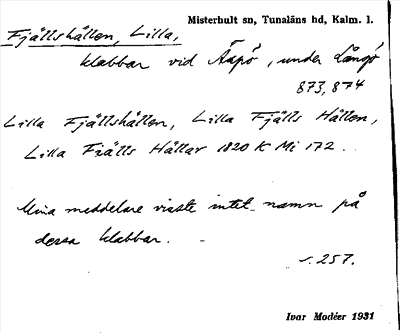 Misterhult sn, Tunaläns hd, Kalm. l.
Fjällshållen, Lilla,
klabbar vid Äspö, under Långö
873, 874
Lilla Fjällshållen, Lilla Fjälls Hållen,
Lilla Fiälls Hållar 1820 K Mi 172.
Mina meddelare visste intet namn på
dessa klabbar.
s. 257.
Ivar Modéer 1931